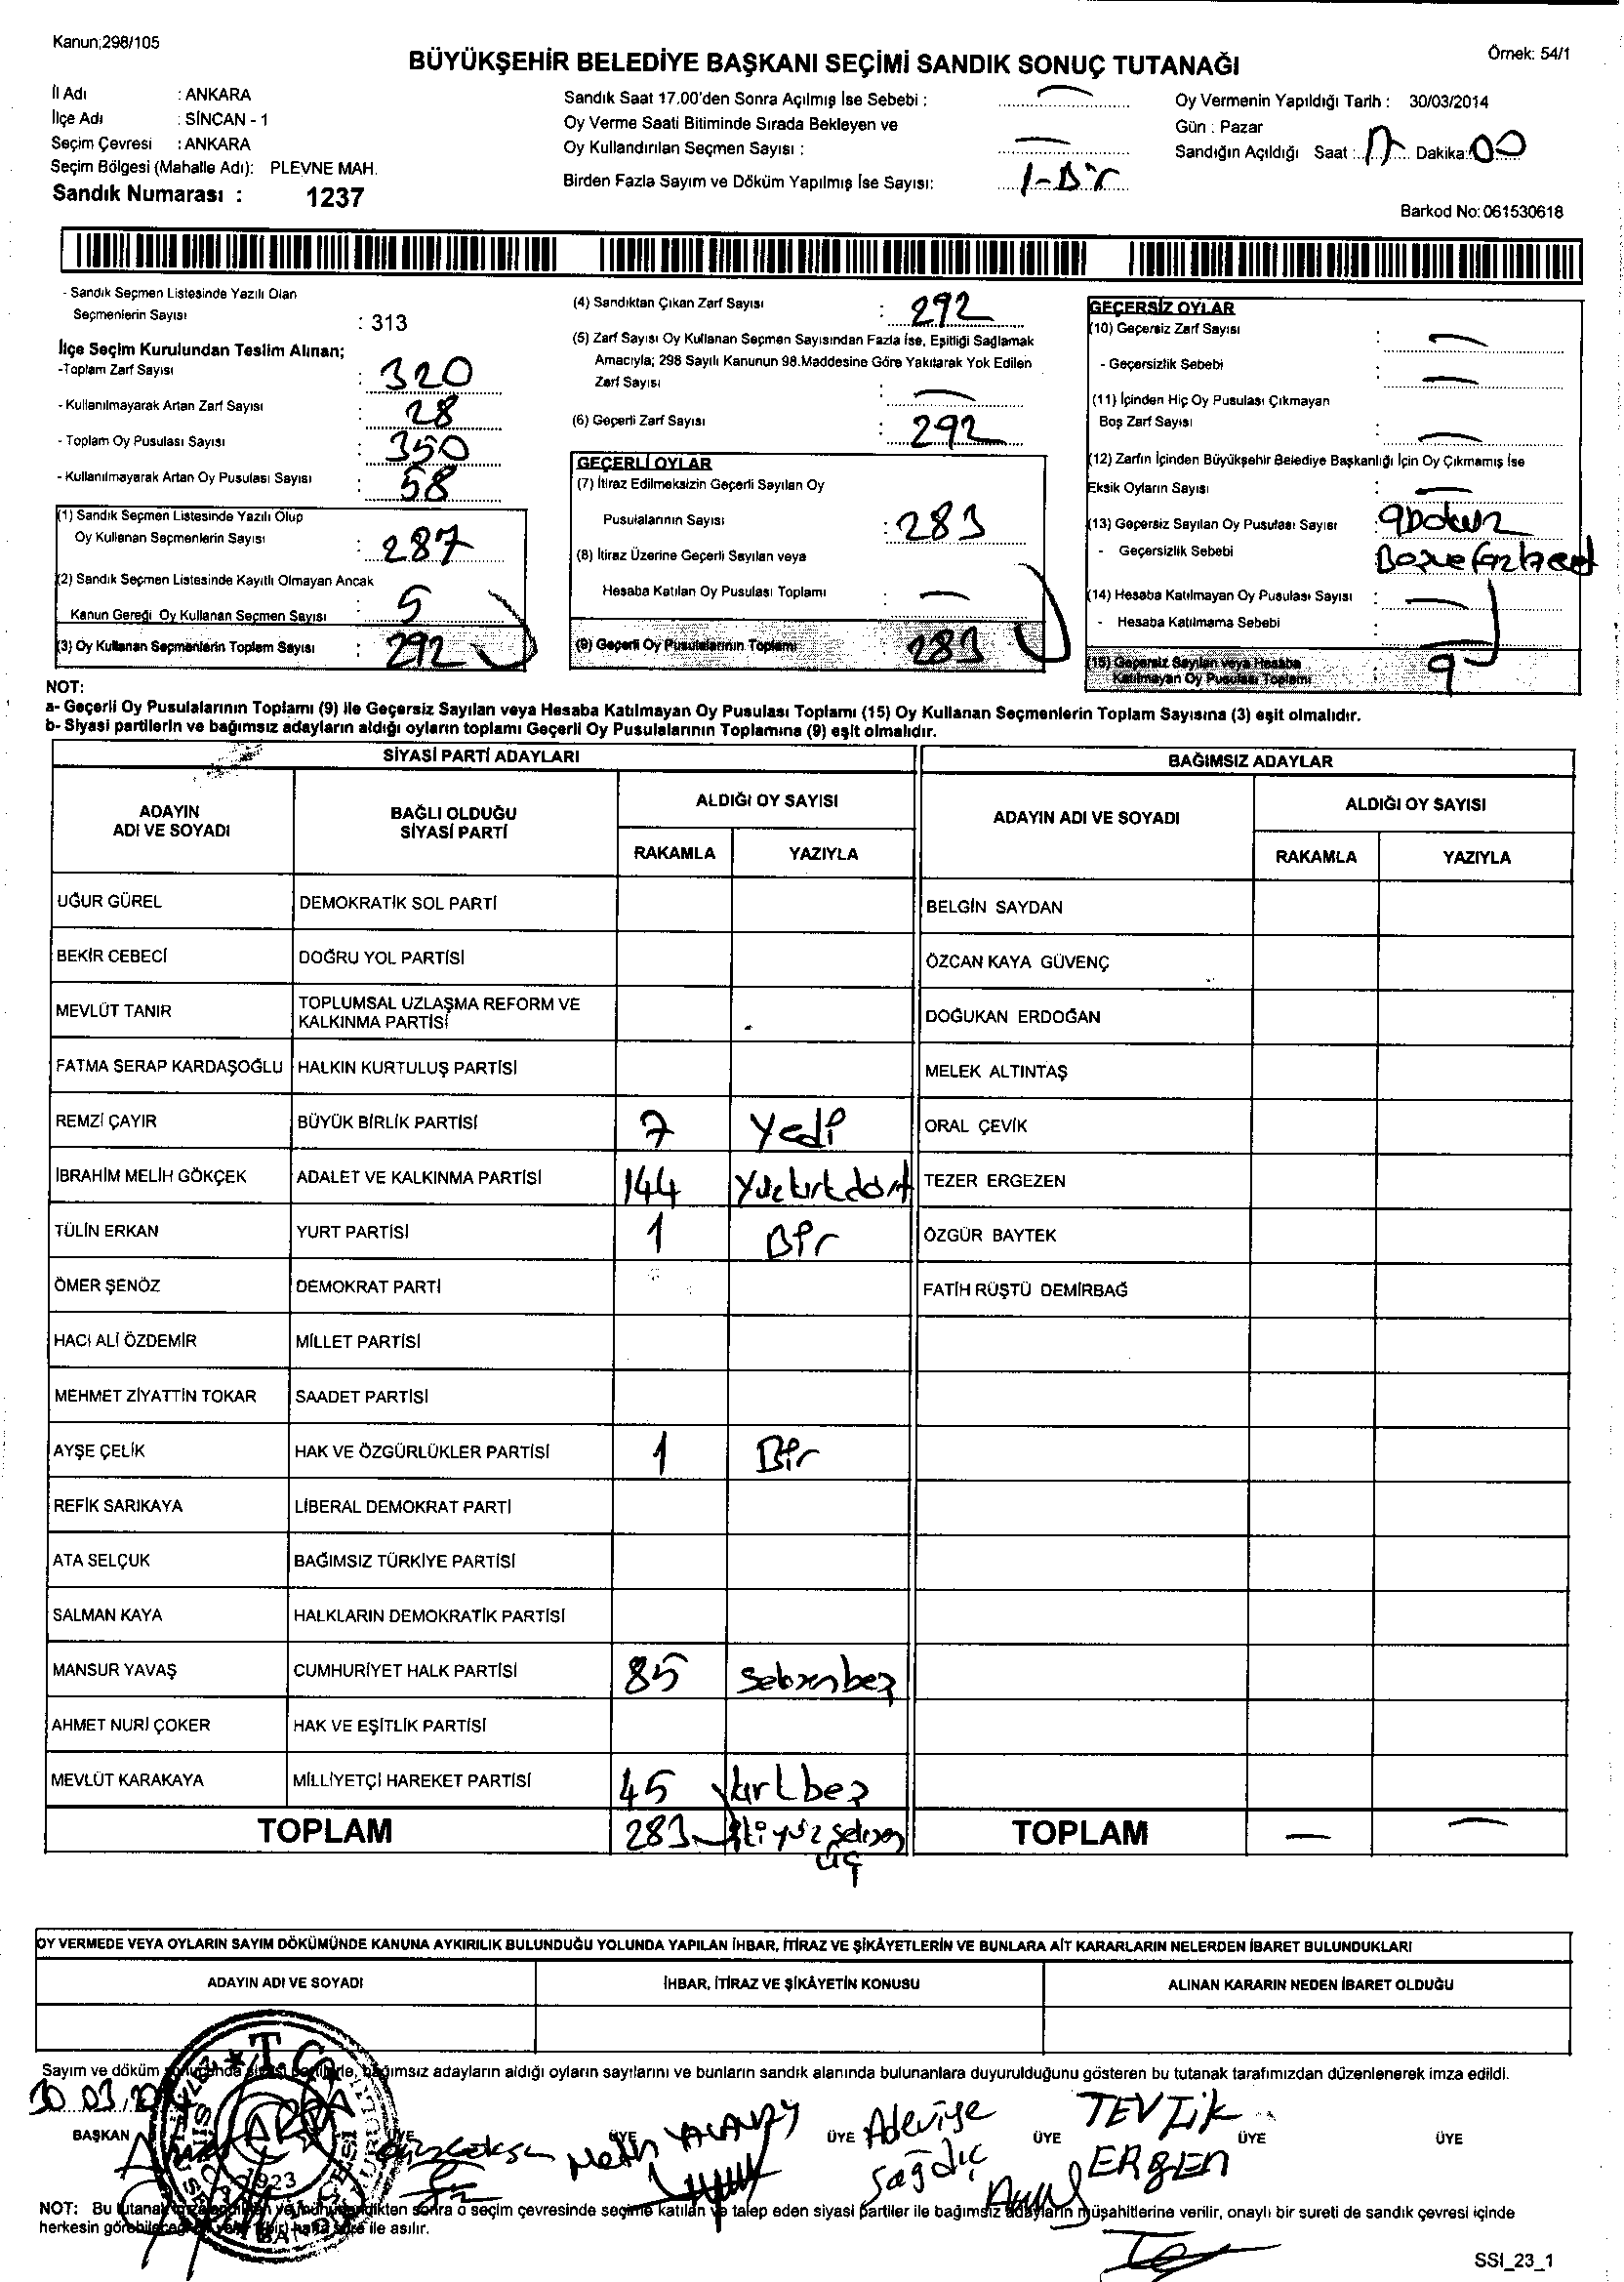 Kanun;298/105
Örnek: 54/1
BÜYÜKŞEHİR BELEDİYE BAŞKANI SEÇİMİ SANDIK SONUÇ TUTANAĞI
İl Adı : ANKARA
İlçe Adı : SİNCAN - 1
Seçim Çevresi : ANKARA
Seçim Bölgesi (Mahalle Adı): PLEVNE MAH.
Sandık Numarası : 1237
Sandık Saat 17.00'den Sonra Açılmış İse Sebebi : —
Oy Verme Saati Bitiminde Sırada Bekleyen ve
Oy Kullandırılan Seçmen Sayısı : —
Birden Fazla Sayım ve Döküm Yapılmış İse Sayısı: 1-Bir
Oy Vermenin Yapıldığı Tarih : 30/03/2014
Gün : Pazar
Sandığın Açıldığı Saat : 17 Dakika: 00
Barkod No: 061530618
- Sandık Seçmen Listesinde Yazılı Olan
Seçmenlerin Sayısı : 313
İlçe Seçim Kurulundan Teslim Alınan;
-Toplam Zarf Sayısı : 320
- Kullanılmayarak Artan Zarf Sayısı : 28
- Toplam Oy Pusulası Sayısı : 350
- Kullanılmayarak Artan Oy Pusulası Sayısı : 58
(1) Sandık Seçmen Listesinde Yazılı Olup
Oy Kullanan Seçmenlerin Sayısı : 287
(2) Sandık Seçmen Listesinde Kayıtlı Olmayan Ancak
Kanun Gereği Oy Kullanan Seçmen Sayısı : 5
(3) Oy Kullanan Seçmenlerin Toplam Sayısı : 292
(4) Sandıktan Çıkan Zarf Sayısı : 292
(5) Zarf Sayısı Oy Kullanan Seçmen Sayısından Fazla İse, Eşitliği Sağlamak
Amacıyla; 298 Sayılı Kanunun 98.Maddesine Göre Yakılarak Yok Edilen
Zarf Sayısı : —
(6) Geçerli Zarf Sayısı : 292
GEÇERLİ OYLAR
(7) İtiraz Edilmeksizin Geçerli Sayılan Oy
Pusulalarının Sayısı : 283
(8) İtiraz Üzerine Geçerli Sayılan veya
Hesaba Katılan Oy Pusulası Toplamı : —
(9) Geçerli Oy Pusulalarının Toplamı 283
GEÇERSİZ OYLAR
(10) Geçersiz Zarf Sayısı : —
- Geçersizlik Sebebi : —
(11) İçinden Hiç Oy Pusulası Çıkmayan
Boş Zarf Sayısı : —
(12) Zarfın İçinden Büyükşehir Belediye Başkanlığı İçin Oy Çıkmamış İse
Eksik Oyların Sayısı : —
(13) Geçersiz Sayılan Oy Pusulası Sayısı : 9 Dokuz
- Geçersizlik Sebebi :
(14) Hesaba Katılmayan Oy Pusulası Sayısı : —
- Hesaba Katılmama Sebebi : —
(15) Geçersiz Sayılan veya Hesaba
Katılmayan Oy Pusulası Toplamı : 9
NOT:
a- Geçerli Oy Pusulalarının Toplamı (9) ile Geçersiz Sayılan veya Hesaba Katılmayan Oy Pusulası Toplamı (15) Oy Kullanan Seçmenlerin Toplam Sayısına (3) eşit olmalıdır.
b- Siyasi partilerin ve bağımsız adayların aldığı oyların toplamı Geçerli Oy Pusulalarının Toplamına (9) eşit olmalıdır.
SİYASİ PARTİ ADAYLARI
BAĞIMSIZ ADAYLAR
ADAYIN ADI VE SOYADI
BAĞLI OLDUĞU SİYASİ PARTİ
ALDIĞI OY SAYISI
RAKAMLA YAZIYLA
ADAYIN ADI VE SOYADI
ALDIĞI OY SAYISI
RAKAMLA YAZIYLA
UĞUR GÜREL DEMOKRATİK SOL PARTİ BELGİN SAYDAN
BEKİR CEBECİ DOĞRU YOL PARTİSİ ÖZCAN KAYA GÜVENÇ
MEVLÜT TANIR TOPLUMSAL UZLAŞMA REFORM VE KALKINMA PARTİSİ DOĞUKAN ERDOĞAN
FATMA SERAP KARDAŞOĞLU HALKIN KURTULUŞ PARTİSİ MELEK ALTINTAŞ
REMZİ ÇAYIR BÜYÜK BİRLİK PARTİSİ 7 Yedi ORAL ÇEVİK
İBRAHİM MELİH GÖKÇEK ADALET VE KALKINMA PARTİSİ 144 Yüzkırkdört TEZER ERGEZEN
TÜLİN ERKAN YURT PARTİSİ 1 Bir ÖZGÜR BAYTEK
ÖMER ŞENÖZ DEMOKRAT PARTİ FATİH RÜŞTÜ DEMİRBAĞ
HACI ALİ ÖZDEMİR MİLLET PARTİSİ
MEHMET ZİYATTİN TOKAR SAADET PARTİSİ
AYŞE ÇELİK HAK VE ÖZGÜRLÜKLER PARTİSİ 1 Bir
REFİK SARIKAYA LİBERAL DEMOKRAT PARTİ
ATA SELÇUK BAĞIMSIZ TÜRKİYE PARTİSİ
SALMAN KAYA HALKLARIN DEMOKRATİK PARTİSİ
MANSUR YAVAŞ CUMHURİYET HALK PARTİSİ 85 Seksenbeş
AHMET NURİ ÇOKER HAK VE EŞİTLİK PARTİSİ
MEVLÜT KARAKAYA MİLLİYETÇİ HAREKET PARTİSİ 45 kırkbeş
TOPLAM 283 ikiyüzseksen üç TOPLAM — —
OY VERMEDE VEYA OYLARIN SAYIM DÖKÜMÜNDE KANUNA AYKIRILIK BULUNDUĞU YOLUNDA YAPILAN İHBAR, İTİRAZ VE ŞİKÂYETLERİN VE BUNLARA AİT KARARLARIN NELERDEN İBARET BULUNDUKLARI
ADAYIN ADI VE SOYADI İHBAR, İTİRAZ VE ŞİKÂYETİN KONUSU ALINAN KARARIN NEDEN İBARET OLDUĞU
Sayım ve döküm bağımsız adayların aldığı oyların sayılarını ve bunların sandık alanında bulunanlara duyurulduğunu gösteren bu tutanak tarafımızdan düzenlenerek imza edildi.
30 03
BAŞKAN ÜYE ÜYE ÜYE ÜYE ÜYE ÜYE
Adeviye Sağdıç
TEVFİK ERGEN
NOT: Bu tutanak sonra o seçim çevresinde seçime katılan ve talep eden siyasi partiler ile bağımsız adayların müşahitlerine verilir, onaylı bir sureti de sandık çevresi içinde
herkesin ile asılır.
SSI_23_1